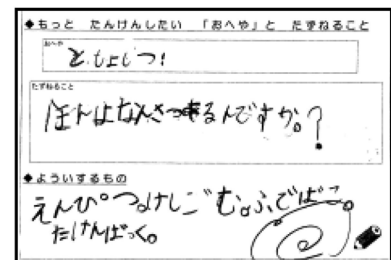 ◆もっと たんけんしたい 「おへや」と たずねること
おへや
としょしつ!
たずねること
ほんはなんさつあるんですか。?
◆よういするもの
えんぴつ。けしごむ。ふでばこ。
たんけんばっく。